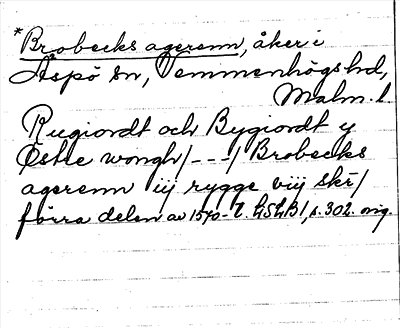 *Brobecks agerenn, åker i
Aspö sn, Vemmenhögs hd,
Malm. l.
Rugiordt och Bygiordt y
Østre wongh/ - - - / Brobecks
agerenn iij rygge viij skr/
förra delen av 1540-t. LGLB 1, s. 302. orig.